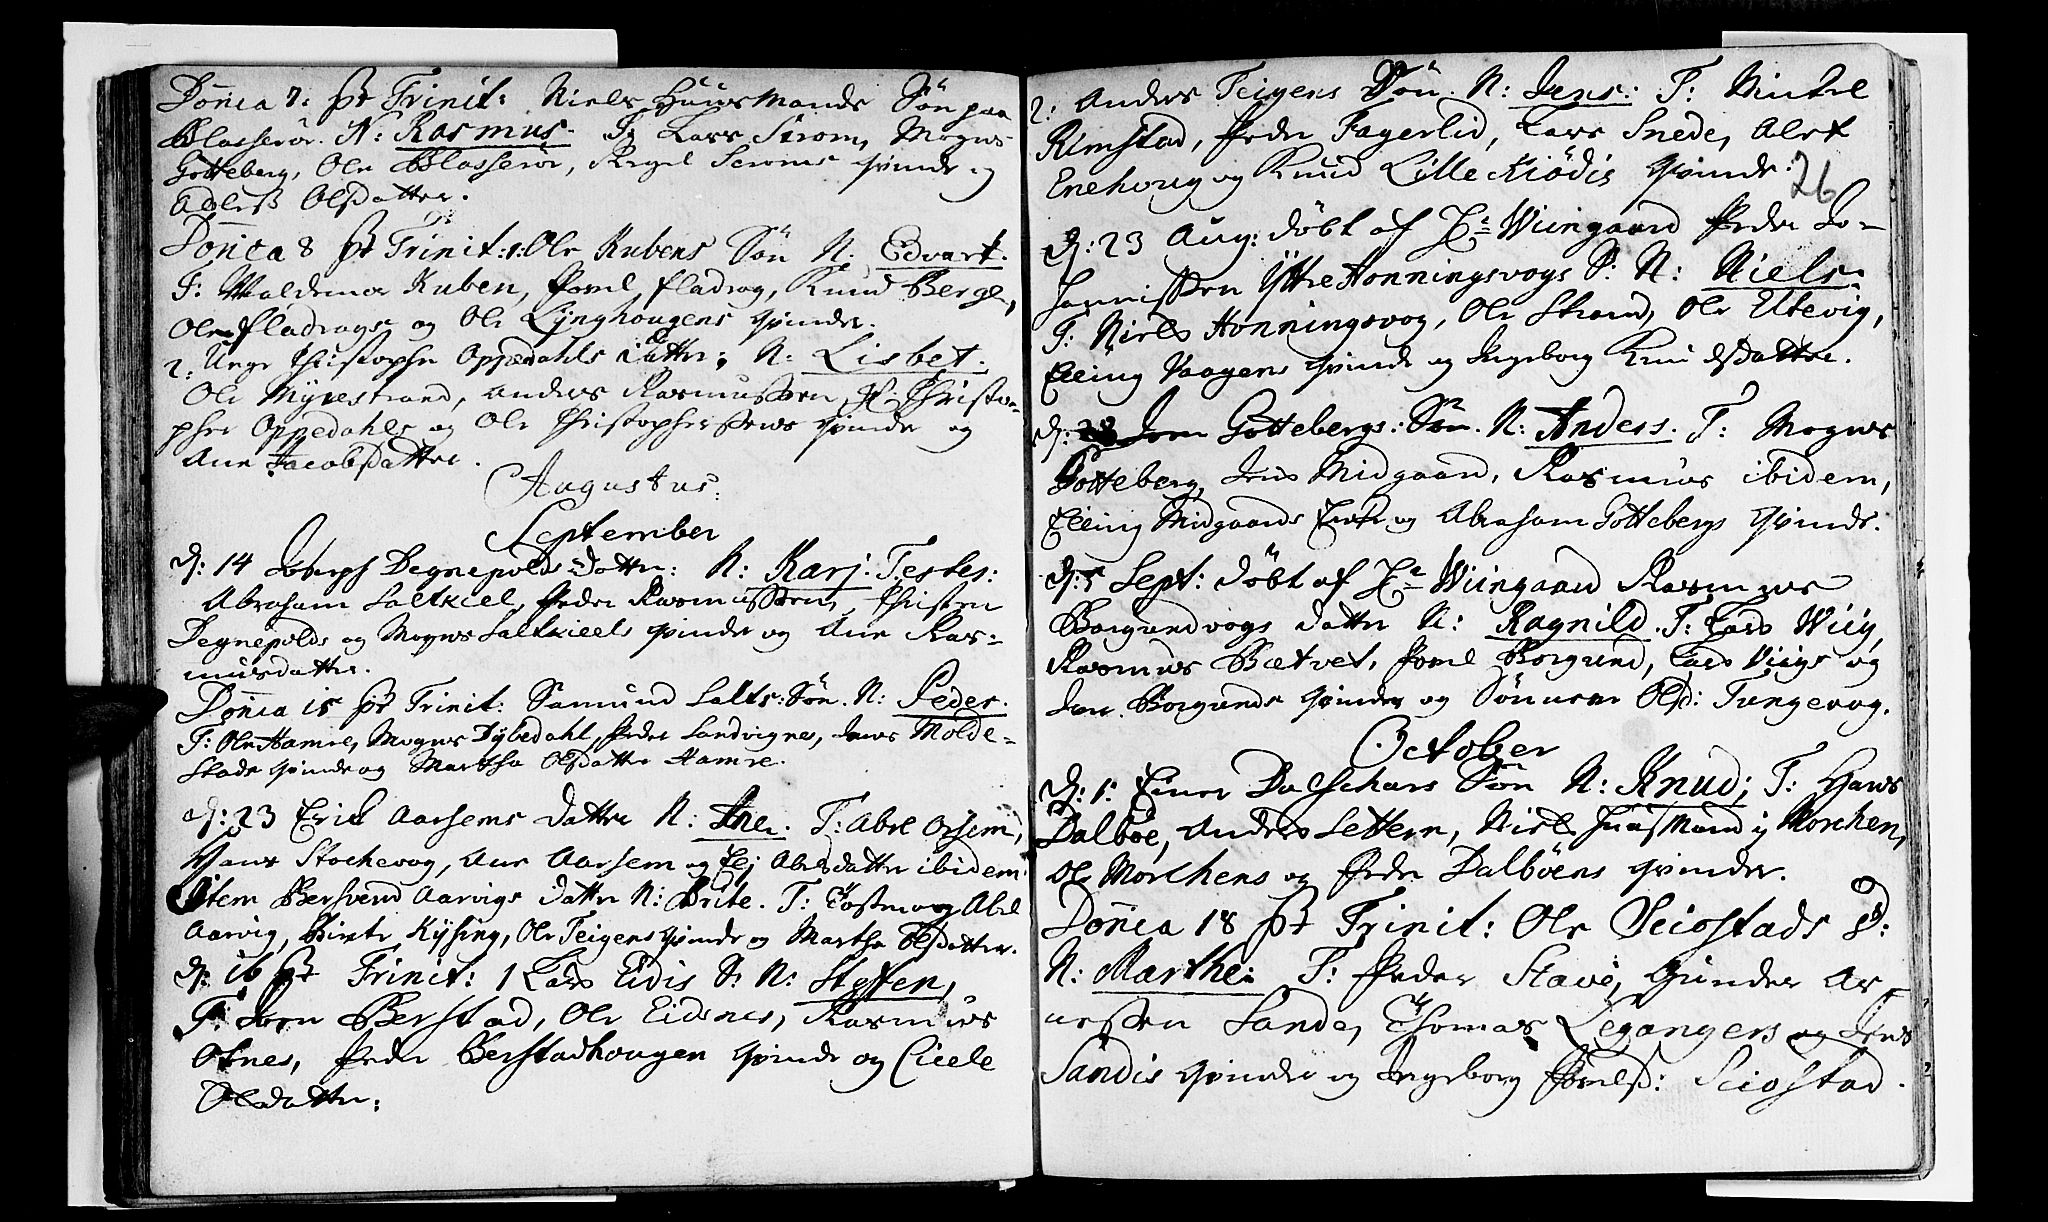 Dōnica 7: pt Trinit: Niels Huusmands Søn paa
Blasserør. N: Rasmus. Lars Strøm, Mogns
Gotteberg, Ole Blasserør, Strøms qvinde og
Olsdatter.
Dōnica 8 pt Trinit: 1: Ole Rubens Søn N: Edvart.
T: Waldemar Ruben, Poul Fladvog, Knud Berge,
Ole Fladvogs og Ole Lynghougens qvinder.
2: Unge Christopher Oppedahls datter; N: Lisbet.
Ole Myrestrand, Anders Rasmussen, Christo-
pher Oppedahls og Ole Christophersens qvinde og
Ane Jacobsdatter.
Augustus:
September
d: 14 Degnepolds datter: N: Karj. Testes:
Abraham Saltkiel, Peder Rasmussen, Christen
Degnepolds og Mogns Saltkieels qvinde og Ane Ras-
musdatter.
Dōnica 15 pt Trinit: Samund Salts: Søn. N: Peder.
T: Ole Hamre, Mogns Dybedahl, Peder Sandvignes, Molde-
stads qvinde og Martha Olsdatter Hamre.
d: 23 Erik Aarsems datter N: Ane. T: Abel Orsem,
Hans Stochevog, Ane Aarsem og Elj Abelsdatter ibidem
Item Bersvend Aarvigs datter N: Brite. T: Abel
Aarvig, Birete Kysing, Ole Teigens qvinde og Martha Olsdatter.
D: 16 pt Trinit: 1 Lars Eidis S: N: Steffen,
T: Jørn Berstad, Ole Eidsnes, Rasmus
Otnes, Peder Berstadhougen qvinde og Cicele
Olsdatter:
2: Anders Teigens Søn. N: Jens: T: Mikel
Rimstad, Peder Fagerlid, Lars Snede, Alet
Enehoug og Knud Lille Kiødis qvinde:
26
d: 23 Aug: døbt af Hr Wiingaard Peder Jo-
hannissen Yttre Honningsvogs S: N: Niels:
T: Niels Honningsvog, Ole Strand, Ole Utevig,
Elling Vaagens qvinde og Ingeborg Knudsdatter.
d: Jørn Gottebergs: Søn. N: Anders. T: Mogns
Gotteberg, Jens Midgaard, Rasmus ibidem,
Elling Midgaards og Abraham Gottebergs qvinde.
d: 5 Sept: døbt af Hr Wiingaard Rasmus
Borgundvogs datter N: Ragnild. T: Lars Wiig,
Rasmus Bætvet, Poul Borgund, Lars Viigs og
Borgunds qvinder og Olsd: Tungevog.
October
d: 1: Einer Dalschars Søn N: Knud; T: Hans
Dalbøe, Anders Settem, Niels Huusmand i Morchen,
Ole Morchens og Peder Dalbøens qvinder.
Dōnica 18 pt Trinit: Ole Seiostads D:
N: Marthe: T: Peder Stave, Gunder As
Sande, Thomas Legangers og Jens
Sandis qvinde og Ingeborg Poulsd: Seiostad.